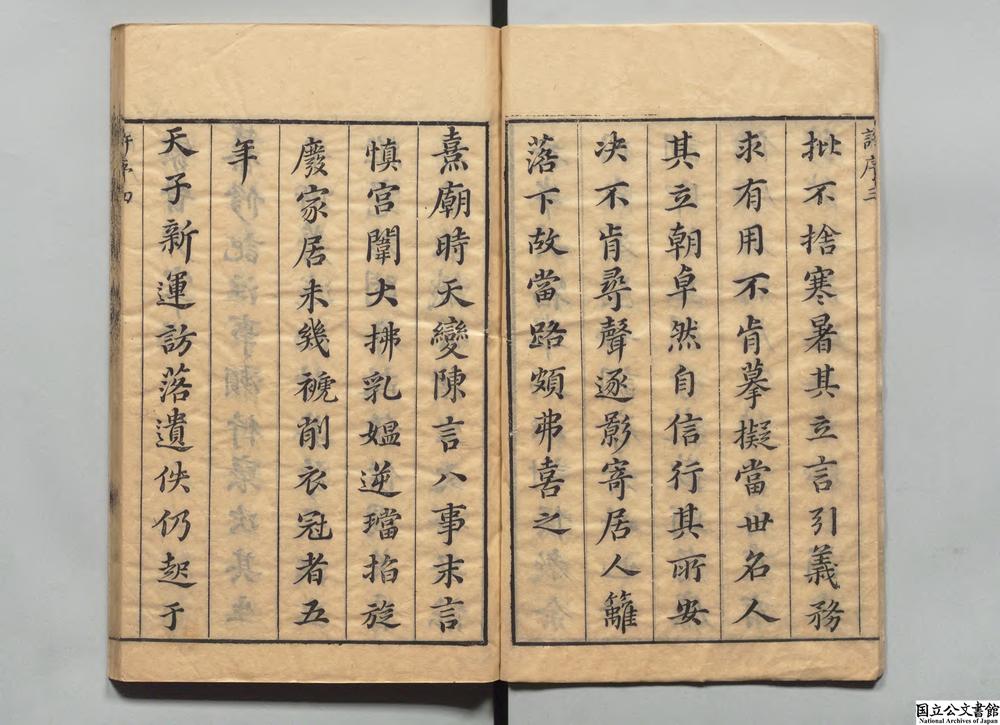 批不捨寒暑其立言引義務
求有用不肯摹擬當世名人
其立朝卓然自信行其所安
决不肯尋聲逐影寄居人籬
落下故當路頗弗喜之
熹廟時天變陳言八事末言
慎宮闈大拂乳媼逆璫掐旋
廢家居未幾褫削衣冠者五
年
天子新運訪落遺佚仍起于
国立公文書館
National Archives of Japan